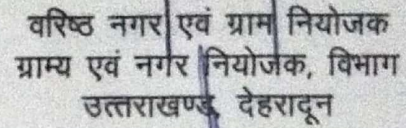 वरिष्ठ नगर एवं ग्राम नियोजक
ग्राम्य एवं नगर नियोजक, विभाग
उत्तराखण्ड, देहरादून